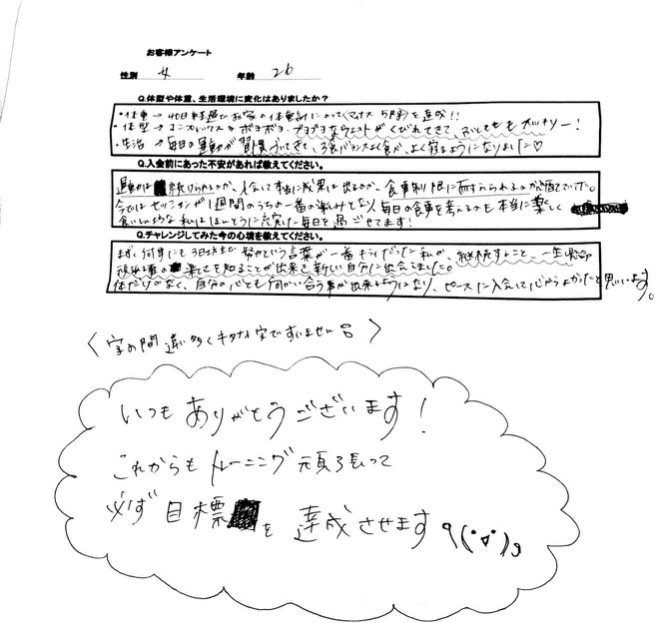 お客様アンケート
性別 女 年齢 26
Q.体型や体重、生活環境に変化はありましたか？
・体重 → を達成!!
・体型 → コンプレックス ボヨボヨ・プヨプヨなウエストがくびれてきて、
・生活 → 毎日の運動が習慣づいてきて、3食バランスよく食べ、よく寝るようになりました♡
Q.入会前にあった不安があれば教えてください。
運動は 続けられるのか、入会して本当に成果は出るのか、食事制限に耐えられるのかが不安でした。
今ではセッションが1週間のうちの一番の楽しみとなり毎日の食事を考えるのも本当に楽しく
私はほんとうに充実した毎日を過ごせてます!
Q.チャレンジしてみた今の心境を教えてください。
まず、何事にも 努力という言葉が一番キライだった私が、継続すること、一生懸命
楽しさを知ることが出来き新しい自分に出会うました。
体だけでなく、自分の心とも向かい合う事が出来るようになり、ピースに入会して心からよかったと思います。
〈字の間違い多くキタナイ字ですいません 〉
いつもありがとうございます!
これからもトレーニング頑張って
必ず目標 を達成させます